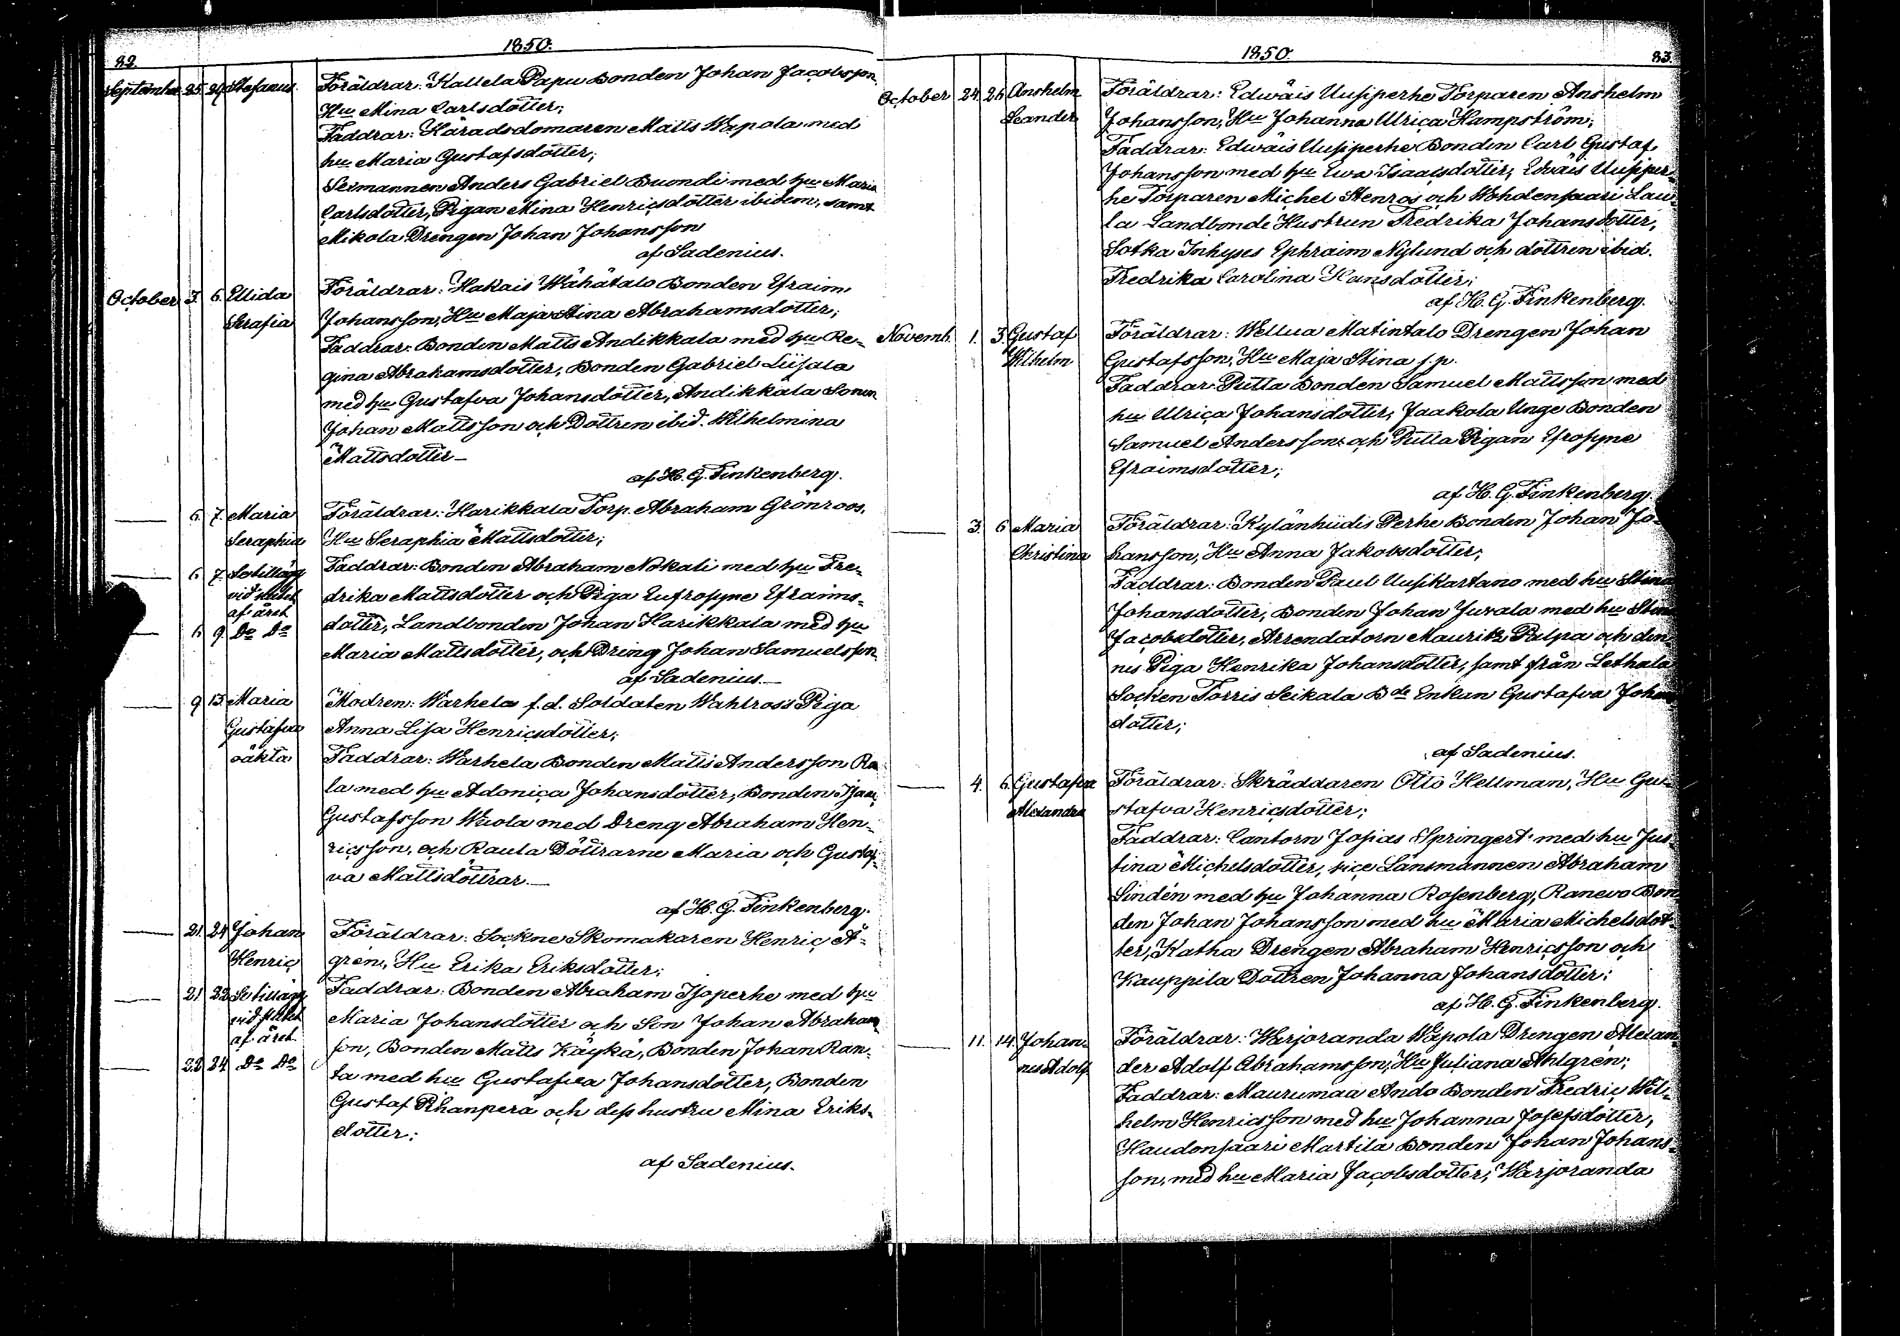 82.
1850.
September 25. 29. Stefanus. Föräldrar: Kallela Papu Bonden Johan Jacobsson
Hu Mina Carlsdotter;
Faddrar: Häradsdomaren Matts Wepola med
hu Maria Gustafsdotter;
Sexmannen Anders Gabriel Buondi med hu Maria
Carlsdotter, Pigan Mina Henricsdotter ibidem, samt
Mikola Drengen Johan Johansson
af Sadenius.
October 3. 6. Ellida Föräldrar: Hakais Wähätalo Bonden Efraim
Serafia Johansson, Hu Maja Stina Abrahamsdotter;
Faddrar: Bonden Matts Andikkala med hu Re-
gina Abrahamsdotter, Bonden Gabriel Liisala
med hu Gustafva Johansdotter, Andikkala Sonen
Johan Mattsson och Dottren ibid. Wilhelmina
Mattsdotter—
af H. G. Finkenberg.
— 6. 7. Maria Föräldrar: Harikkala Torp. Abraham Grönroos,
Seraphia Hu Seraphia Mattsdotter;
— 6. 7. Se tillägg Faddrar: Bonden Abraham Nokali med hu Fre-
vid slutet drika Mattsdotter och Piga Eufrosyne Efraims-
af året
— 6. 9. Do Do dotter, Landbonden Johan Harikkala med hu
Maria Mattsdotter, och Dreng Johan Samuelsson.
af Sadenius.—
— 9. 13. Maria Modren: Warhela f.d. Soldaten Wahlross Piga
Gustafva Anna Lisa Henricsdotter;
oäkta Faddrar: Warhela Bonden Matts Andersson Ra
la med hu Adonica Johansdotter, Bonden Isaac
Gustafsson Wuola med Dreng Abraham Hen-
ricsson, och Raula Döttrarne Maria och Gustaf-
va Mattsdöttrar.—
af H. G. Finkenberg.
— 21. 24. Johan Föräldrar: Sockne Skomakaren Henric Å-
Henric gren, Hu Erika Eriksdotter;
— 21. 22. Se tillägg Faddrar: Bonden Abraham Isoperhe med hu
vid slutet Maria Johansdotter och Son Johan Abrahams
af året son, Bonden Matts Käykä, Bonden Johan Ran-
— 22. 24. Do Do ta med hu Gustafva Johansdotter, Bonden
Gustaf Rihanpera och dess hustru Mina Eriks-
dotter;
af Sadenius.
1850.
83.
October 24. 26. Anshelm Föräldrar: Edwäis Uusiperhe Torparen Anshelm
Leander Johansson, Hu Johanna Ulrica Hampström;
Faddrar: Edwäis Uusiperhe Bonden Carl Gustaf
Johansson med hu Ewa Isaacsdotter, Edwäis Uusiper-
he Torparen Michel Stenros och Wohdensaari Lau-
la Landbonde Hustrun Fredrika Johansdotter,
Sotka Inhyses Ephraim Nylund och dottren ibid.
Fredrika Carolina Hansdotter;
af H. G. Finkenberg.
Novemb. 1. 3. Gustaf Föräldrar: Wellua Matintalo Drengen Johan
Wilhelm Gustafsson, Hu Maja Stina s.p.
Faddrar: Putta Bonden Samuel Mattsson med
hu Ulrica Johansdotter, Jaakola Unge Bonden
Samuel Andersson och Putta Pigan Efrosyne
Efraimsdotter;
af H. G. Finkenberg.
— 3. 6. Maria Föräldrar: Kylänhiidis Perhe Bonden Johan Jo-
Christina hansson, Hu Anna Jakobsdotter;
Faddrar: Bonden Paul Uusikartano med hu Stina
Johansdotter, Bonden Johan Juvala med hu Stina
Jacobsdotter, Arrendatorn Maurits Pulpa och den-
nes Piga Henrika Johansdotter, samt från Lethala
Socken Torris Seikala Bde Enkun Gustafva Johans
dotter;
af Sadenius.
— 4. 6. Gustafva Föräldrar: Skräddaren Otto Hellman, Hu Gus-
Alexandra tafva Henricsdotter;
Faddrar: Cantorn Josias Springert med hu Jus-
tina Michelsdotter, vice Länsmannen Abraham
Lindén med hu Johanna Rosenberg, Ranevo Bon-
den Johan Johansson med hu Maria Michelsdot-
ter, Katha Drengen Abraham Henricsson och
Kauppila Dottren Johanna Johansdotter;
af H. G. Finkenberg.
— 11. 14. Johan- Föräldrar: Warjoranda Wäpola Drengen Alexan-
nes Adolf der Adolf Abrahamsson, Hu Juliana Ahlgrén;
Faddrar: Maurumaa Ando Bonden Fredric Wil-
helm Henricsson med hu Johanna Josefsdotter,
Haudonsaari Martila Bonden Johan Johans-
son, med hu Maria Jacobsdotter; Warjoranda